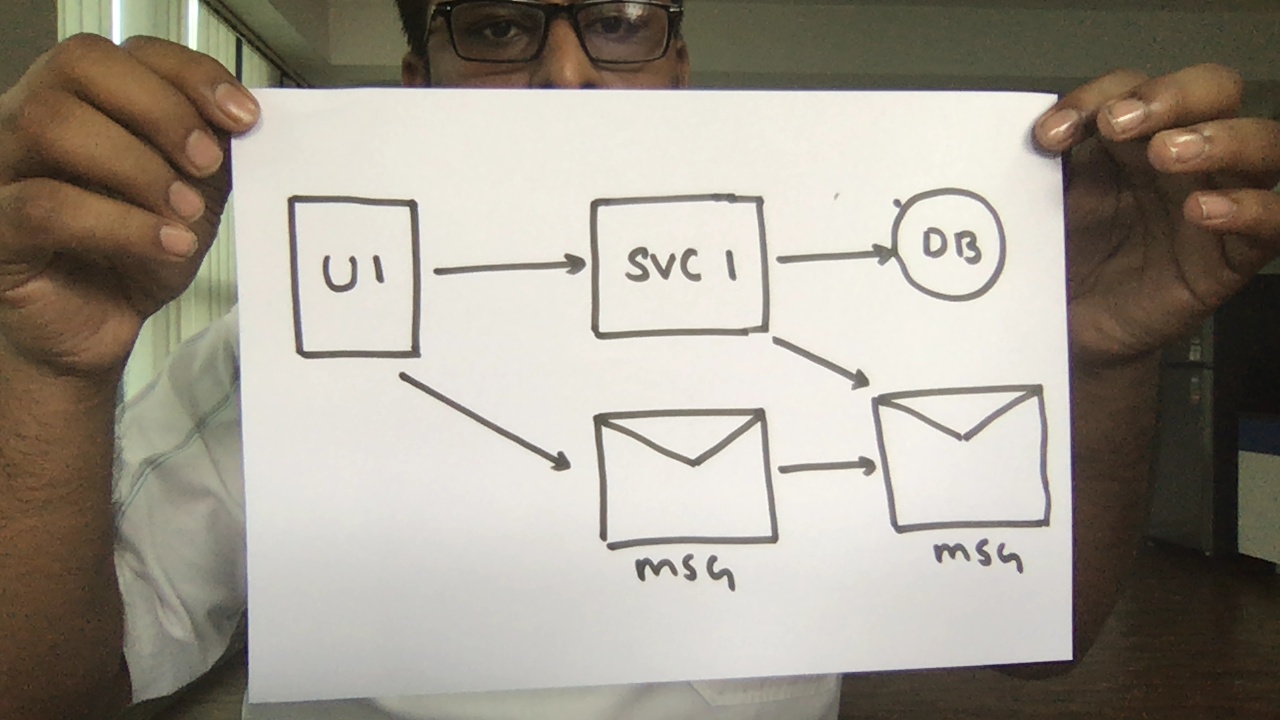 UI
SVC 1
DB
msg
msg